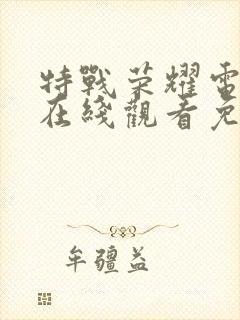 特戰荣耀電
在綫觀看免
牟疆益